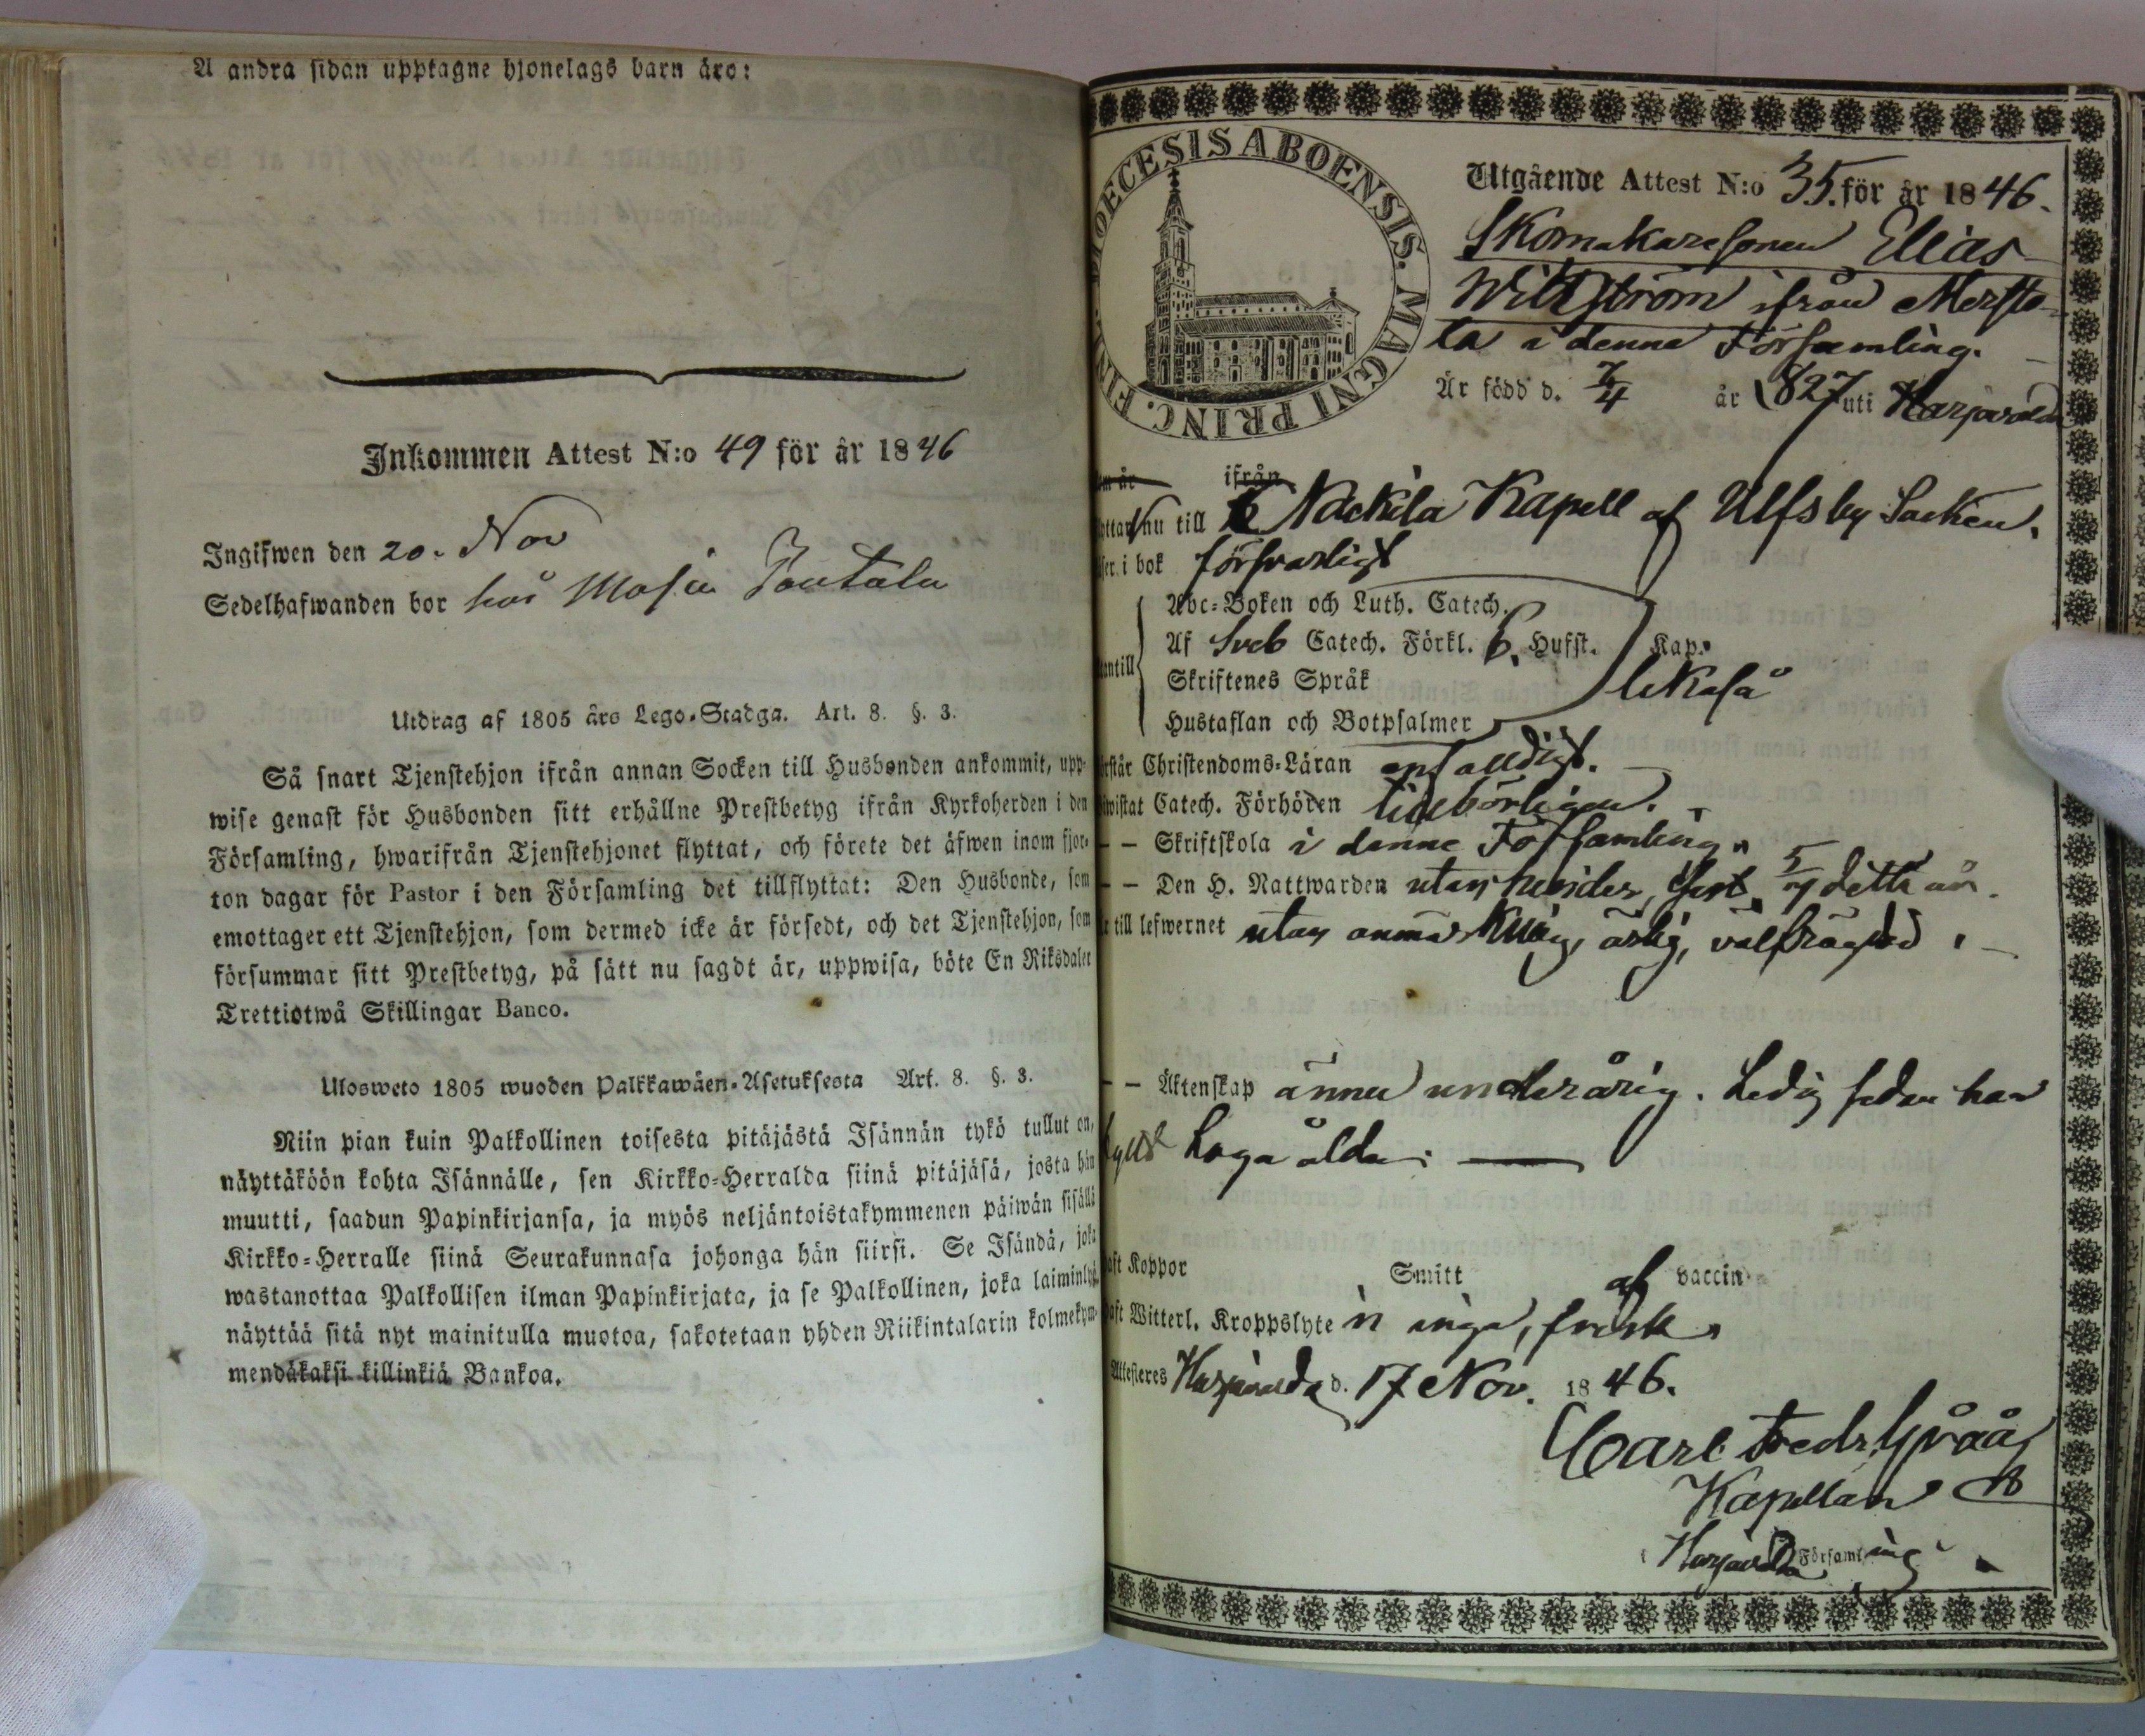 A andra sidan upptagne hjonelags barn äro:
Inkommen Attest N:o 49 för år 1846
Ingifwen den 20. Nov
Sedelhafwanden bor hos
Utdrag af 1805 års Lego-Stadga. Art. 8. §. 3.
Så snart Tjenstehjon ifrån annan Socken till Husbonden ankommit, upp-
wise genast för Husbonden sitt erhållne Prestbetyg ifrån Kyrkoherden i den
Församling, hwarifrån Tjenstehjonet flyttat, och förete det äfwen inom fjor-
ton dagar för Pastor i den Församling det tillflyttat: Den Husbonde, som
emottager ett Tjenstehjon, som dermed icke är försedt, och det Tjenstehjon, som
försummar sitt Prestbetyg, på sätt nu sagdt är, uppwisa, böte En Riksdaler
Trettiotwå Skillingar Banco.
Ulosweto 1805 wuoden Palkkawäen-Asetuksesta Art. 8. §. 3.
Niin pian kuin Palkollinen toisesta pitäjästä Isännän tykö tullut on,
näyttäköön kohta Isännälle, sen Kirkko-Herralda siinä pitäjäsä, josta hän
muutti, saadun Papinkirjansa, ja myös neljäntoistakymmenen päiwän sisällä
Kirkko-Herralle siinä Seurakunnasa johonga hän siirsi. Se Isändä, joka
wastanottaa Palkollisen ilman Papinkirjata, ja se Palkollinen, joka laiminlyö
näyttää sitä nyt mainitulla muotoa, sakotetaan yhden Riikintalarin kolmekym-
mendäkaksi killinkiä Bankoa.
DIOECESIS ABOENSIS. MAGNI PRINC. FINL.
Utgående Attest N:o 35. för år 1846.
Skomakaresonen Elias
Wikström ifrån Mersto-
la i denne Församling.
Är född d. 7/4 år 1827 uti Harjavalda
ifrån
nu till Nackila Kapell af Ulfsby Socken.
i bok försvarligt
Abc-Boken och Luth. Catech.
Af Sveb Catech. Förkl. 6. Hufst. Kap.
Skriftenes Språk likaså
Hustaflan och Botpsalmer
Christendoms-Läran enfalldigt.
Catech. Förhören tillbörligen.
– – Skriftskola i denne Församling.
– – Den H. Nattwarden utan hinder, sist 5/7 detta år.
till lefwernet utan anmärkning, ärlig, välfrägdad.
– – Äktenskap ännu underårig. Ledig sedan han
fyllt Laga ålder. —
Koppor Smitt af vaccin
Witterl. Kroppslyte n inga, frisk
Attesteres Harjavalda d. 17 Nov. 1846.
Carl Fredr. Gråå
Kapellan
i Harjavalda Församling